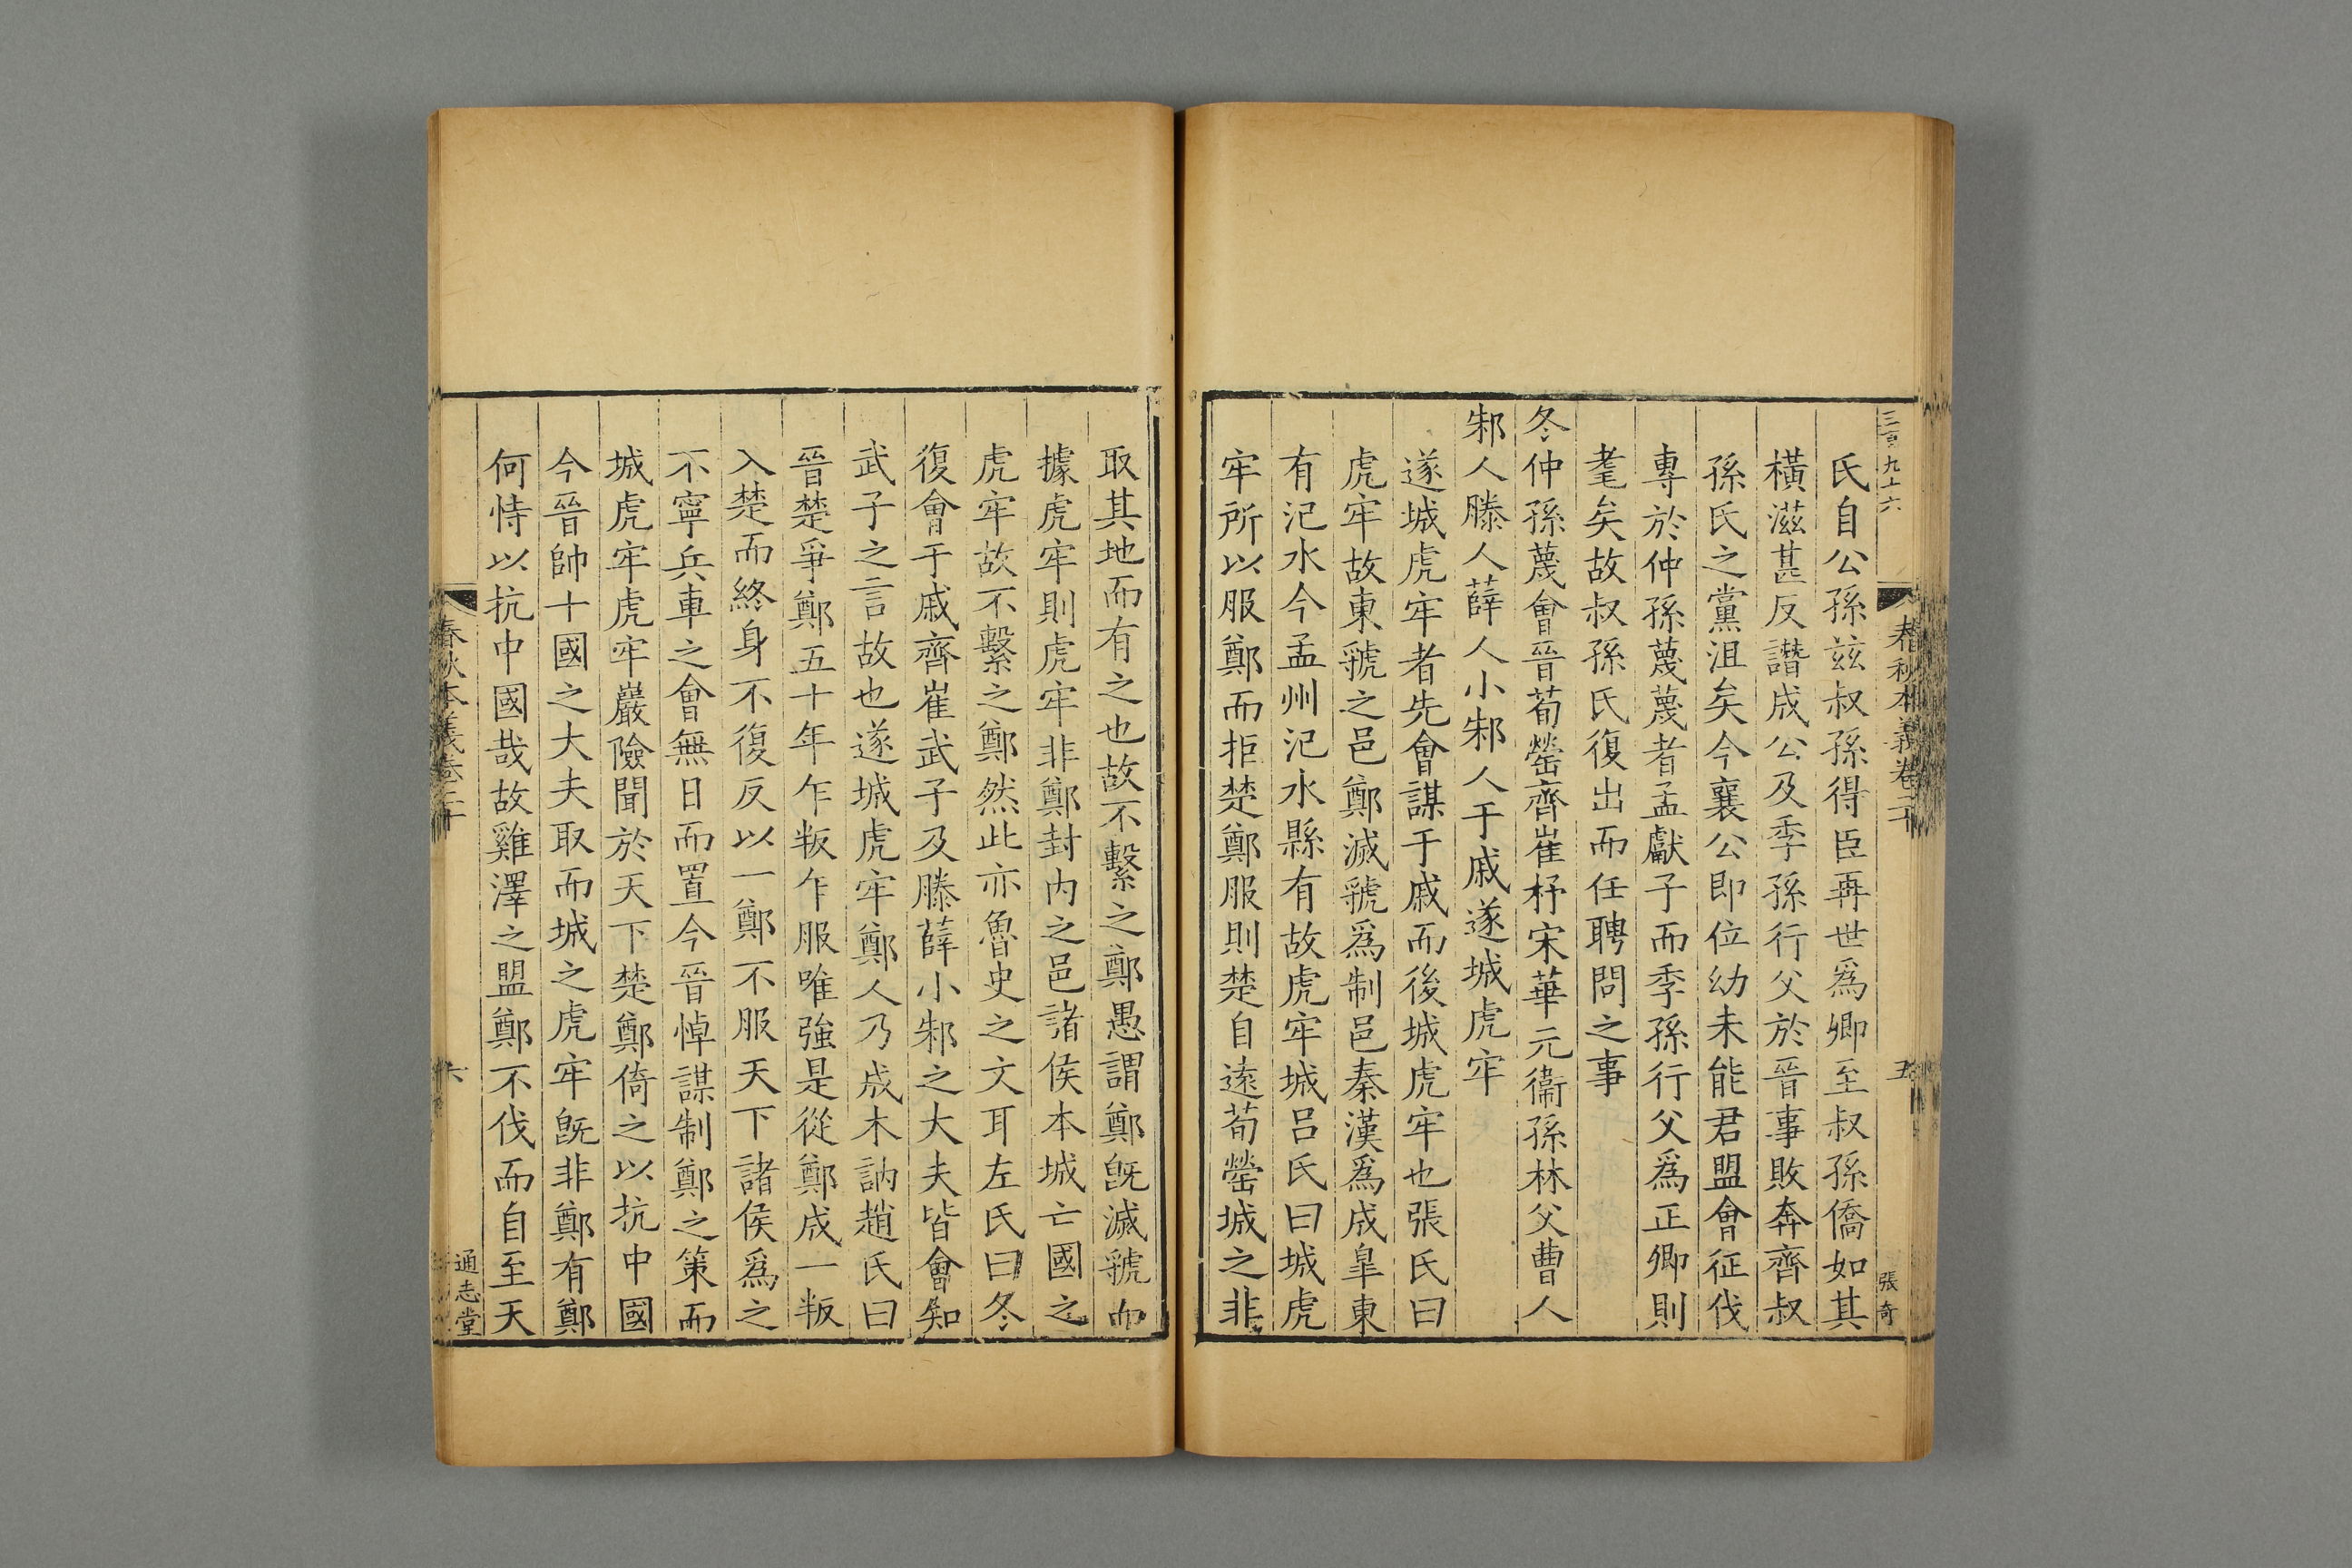 三百九十六
春秋本義卷二十
五
張奇
氏自公孫兹叔孫得臣再世爲卿至叔孫僑如其
橫滋甚反譖成公及季孫行父於晉事敗奔齊叔
孫氏之黨沮矣今襄公即位幼未能君盟會征伐
專於仲孫蔑蔑者孟獻子而季孫行父爲正卿則
耄矣故叔孫氏復出而任聘問之事
冬仲孫蔑會晉荀罃齊崔杼宋華元衞孫林父曹人
邾人滕人薛人小邾人于戚遂城虎牢
遂城虎牢者先會謀于戚而後城虎牢也張氏曰
虎牢故東虢之邑鄭滅虢爲制邑秦漢爲成皐東
有汜水今孟州汜水縣有故虎牢城吕氏曰城虎
牢所以服鄭而拒楚鄭服則楚自遠荀罃城之非
取其地而有之也故不繫之鄭愚謂鄭旣滅虢而
據虎牢則虎牢非鄭封内之邑諸侯本城亡國之
虎牢故不繫之鄭然此亦魯史之文耳左氏曰冬
復會于戚齊崔武子及滕薛小邾之大夫皆會知
武子之言故也遂城虎牢鄭人乃成木訥趙氏曰
晉楚爭鄭五十年乍叛乍服唯強是從鄭成一叛
入楚而終身不復反以一鄭不服天下諸侯爲之
不寧兵車之會無日而置今晉悼謀制鄭之策而
城虎牢虎牢巖險聞於天下楚鄭倚之以抗中國
今晉帥十國之大夫取而城之虎牢旣非鄭有鄭
何恃以抗中國哉故雞澤之盟鄭不伐而自至天
春秋本義卷二十
六
通志堂